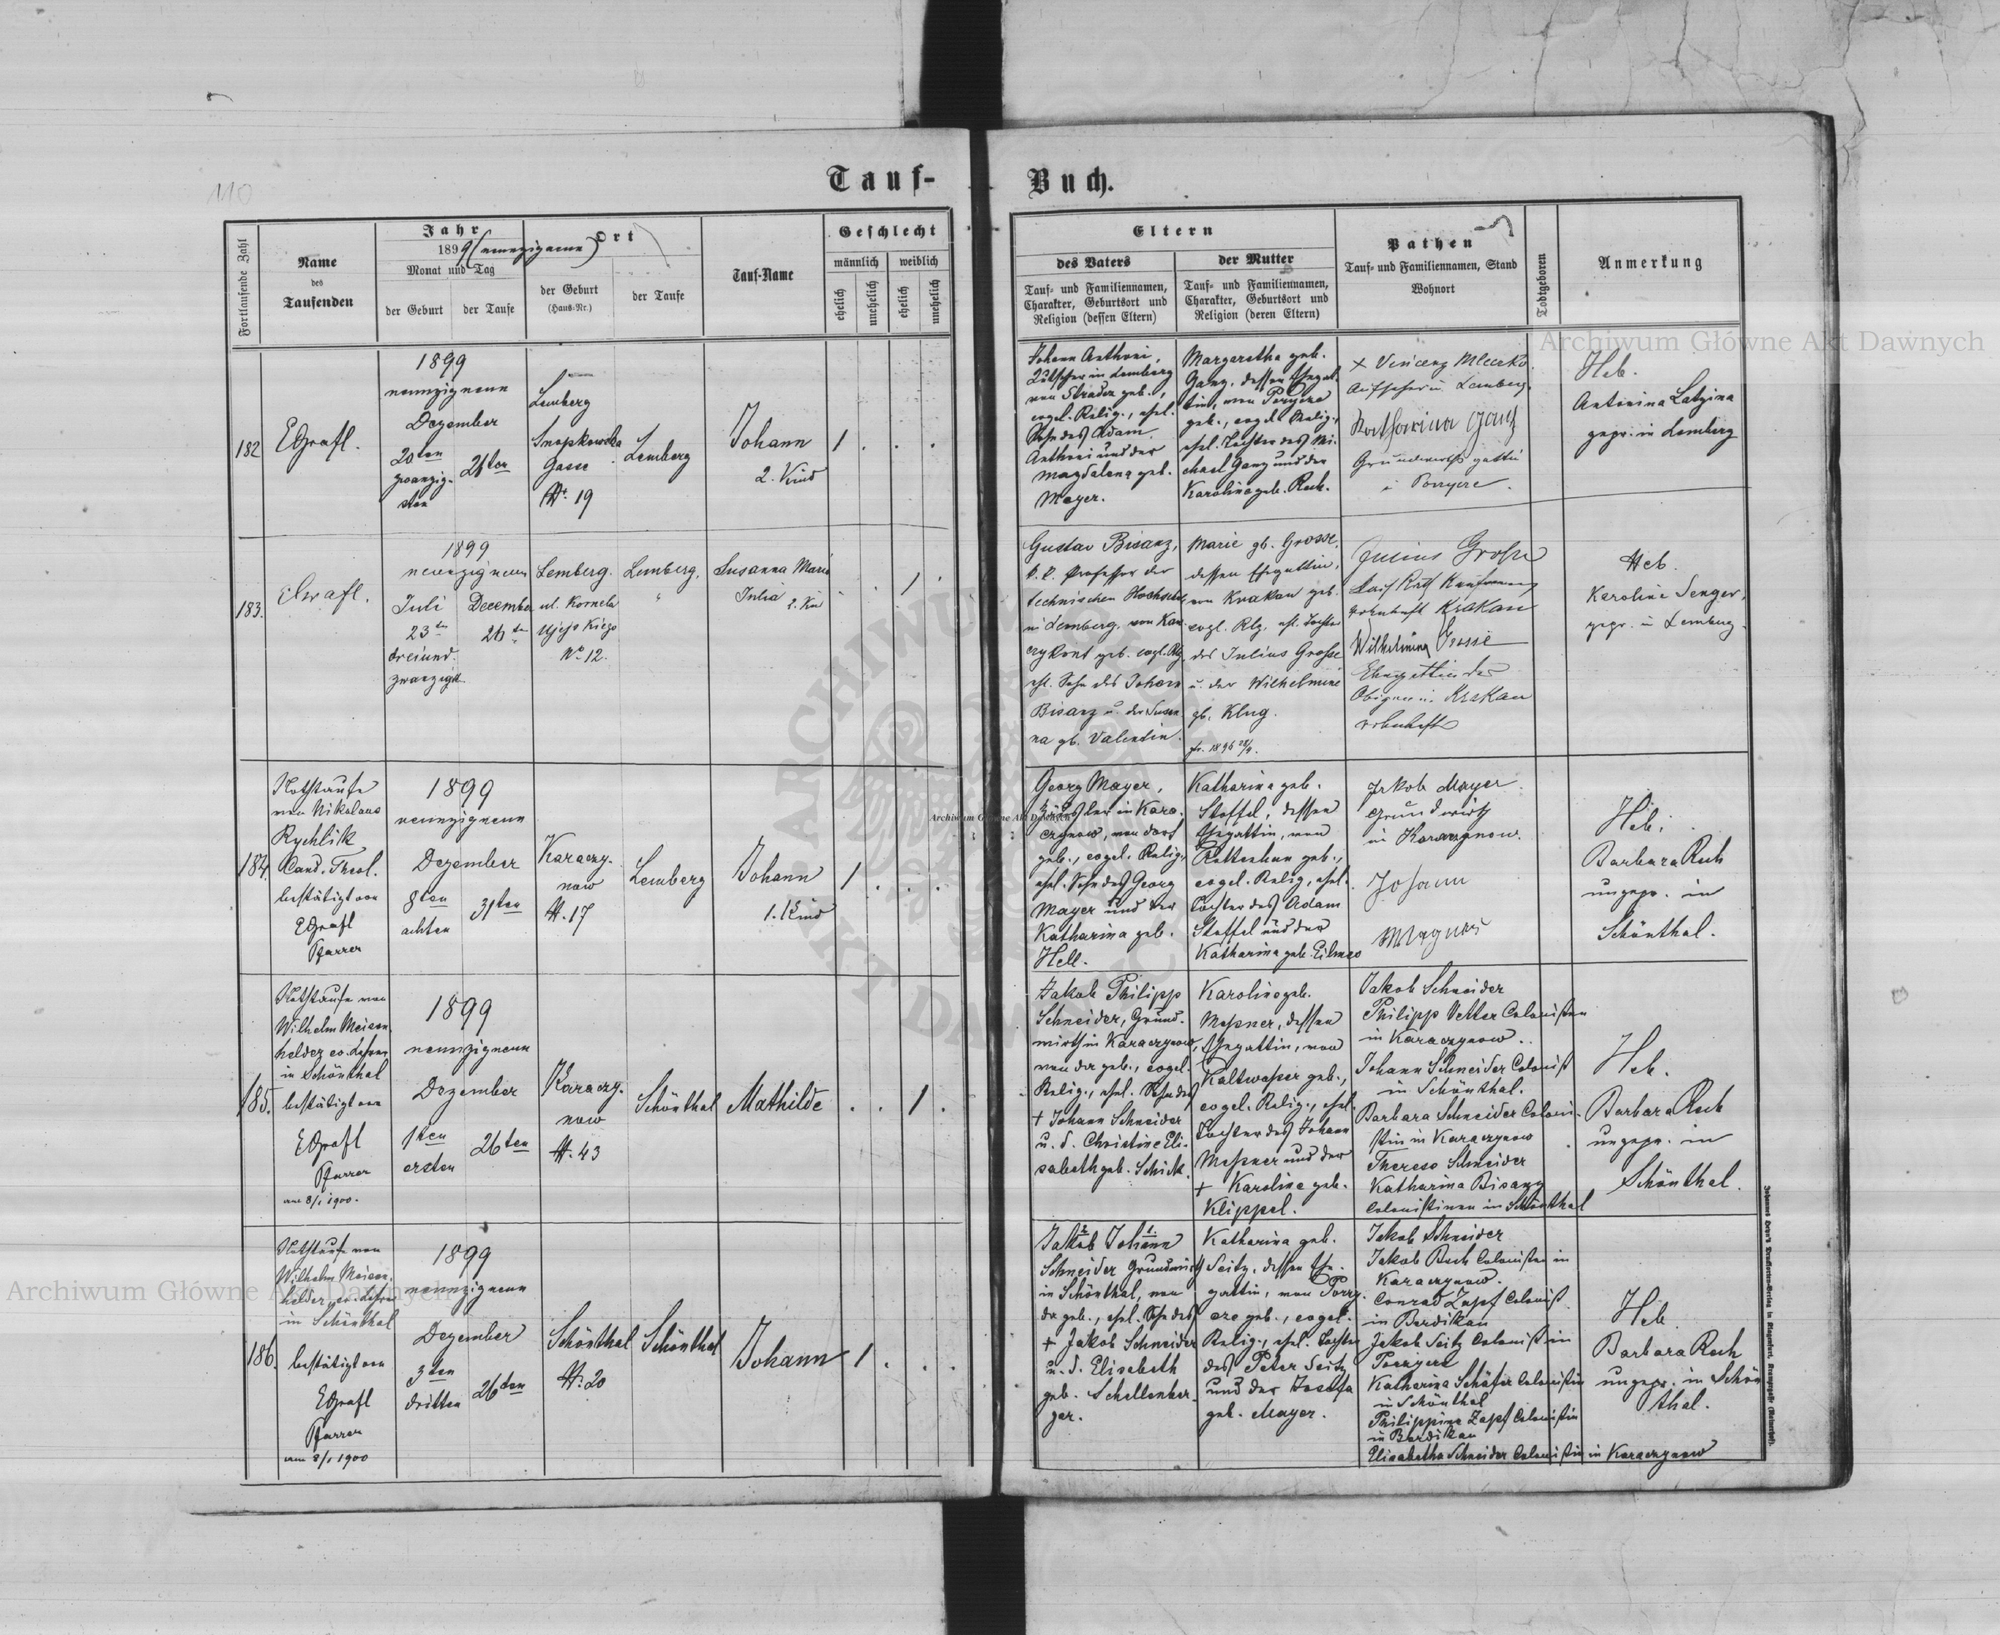 110
Tauf-
Buch.
Fortlaufende Zahl
Name
des
Taufenden
Jahr
1899 (neunzigneun)
Monat und Tag
der Geburt
der Taufe
Ort
der Geburt
(Haus-Nr.)
der Taufe
Tauf-Name
Geschlecht
männlich
weiblich
ehelich
unehelich
ehelich
unehelich
Eltern
des Vaters
Tauf- und Familiennamen,
Charakter, Geburtsort und
Religion (dessen Eltern)
der Mutter
Tauf- und Familiennamen,
Charakter, Geburtsort und
Religion (deren Eltern)
Pathen
Tauf- und Familiennamen, Stand
Wohnort
Todtgeboren
Anmerkung
182
EGrafl.
1899
neunzigneun
Dezember
20ten
zwanzig-
sten
26ten
Lemberg
Snopkowska
Gasse
N. 19
Lemberg
Johann
2. Kind
1
Johann
Kutscher in Lemberg
von Stradez geb.,
evgel. Relig., ehel.
Sohn des Adam
und der
Magdalena geb.
Mayer.
Margaretha geb.
Ganz, dessen Ehegat-
tin, von
geb., evgel. Relig.,
ehel. Tochter des Mi-
chael Ganz und der
Karoline geb. Rech.
+ Vincenz Mleczko
Aufseher in Lemberg
Katharina Ganz
Grundwirthsgattin
Heb.
Antonina
gepr. in Lemberg
183.
EGrafl.
1899
neunzigneun
Juli
23ten
dreiund.
zwanzigst.
December
26ten
Lemberg.
ul. Kornela
Ujejskiego
No. 12.
Lemberg.
"
Susanna Maria
Julia
2. Kin
1
Gustav Bisanz,
k. k. Professor der
technischen Hochschule
in Lemberg, von
geb. evgl. Rlg.
ehl. Sohn des Johann
Bisanz u. der Susan
na gb. Valentin.
Marie gb. Grosse,
dessen Ehegattin,
von Krakau geb.
evgl. Rlg. ehl. Tochter
des Julius Grosse
u. der Wilhelmine
gb. Klug.
Julius Grosse
Kais Rath Kaufmann
wohnhaft Krakau
Wilhelmina Grosse
Ehegattin des
Obigen in Krakau
wohnhaft
Heb.
Karoline Senger,
gepr. in Lemberg.
184.
Nothtaufe
von Nikolaus
Rychlik
Cand. Theol.
bestätigt von
EGrafl
Pfarrer
1899
neunzigneun
Dezember
8ten
achten
31ten
Karaczy-
now
N. 17
Lemberg
Johann
1. Kind
1
Georg Mayer,
in Kara-
czynow, von dort
geb., evgel. Relig.,
ehel. Sohn des Georg
Mayer und der
Katharina geb.
Hell.
Katharina geb.
Stoffel, dessen
Ehegattin, von
geb.,
evgel. Relig., ehel.
Tochter des Adam
Stoffel und der
Katharina geb.
Jakob Mayer
Grundwirth
in Karaczynow.
Johann
Heb.
Barbara Rech
ungepr. in
Schönthal.
185.
Nothtaufe von
Wilhelm Meissn-
helder ev. Lehrer
in Schönthal
bestätigt von
EGrafl
Pfarrer
am 8/1 1900.
1899
neunzigneun
Dezember
1ten
ersten
26ten
Karaczy-
now
N. 43
Schönthal
Mathilde
1
Jakob Philipp
Schneider, Grund-
wirth in Karaczynow,
von dor geb., evgel.
Relig., ehel. Sohn des
+ Johann Schneider
u. d. Christine Eli-
sabeth geb. Schick.
Karoline geb.
Messner, dessen
Ehegattin, von
Kaltwasser geb.,
evgel. Relig., ehel.
Tochter des Johann
Messner und der
+ Karolina geb.
Klippel.
Jakob Schneider
Philipp Vetter Colonisten
in Karaczynow.
Johann Schneider Colonist
in Schönthal.
Barbara Schneider Coloni-
stin in Karaczynow
Therese Schneider
Katharina Bisanz
Colonistinen in Schönthal
Heb.
Barbara Rech
ungepr. in
Schönthal.
186.
Nothtaufe von
Wilhelm Meissn-
helder, ev. Lehrer
in Schönthal
bestätigt von
EGrafl
Pfarrer
am 8/1 1900
1899
neunzigneun
Dezember
3ten
dritten
26ten
Schönthal
N. 20
Schönthal
Johann
1
Jakob Johann
Schneider Grundwirth
in Schönthal, von
da geb., ehel. Sohn des
+ Jakob Schneider
u. d. Elisabeth
geb. Schellenber-
ger.
Katharina geb.
Seitz, dessen Ehe-
gattin, von Porzy-
cze geb., evgel.
Relig., ehel. Tochter
des Peter Seitz
und der Josefa
geb. Mayer.
Jakob Schneider
Jakob Rech Colonisten in
Karaczynow.
Conrad Zapf Colonist
in Berdikau
Jakob Seitz Colonist in
Katharina Schäfer Colonistin
in Schönthal
Philippina Zapf Colonistin
in Berdikau
Elisabetha Schneider Colonistin in Karaczynow
Heb.
Barbara Rech
ungepr. in Schön
thal.
Archiwum Główne Akt Dawnych
Archiwum Główne Akt Dawnych
Archiwum Główne Akt Dawnych